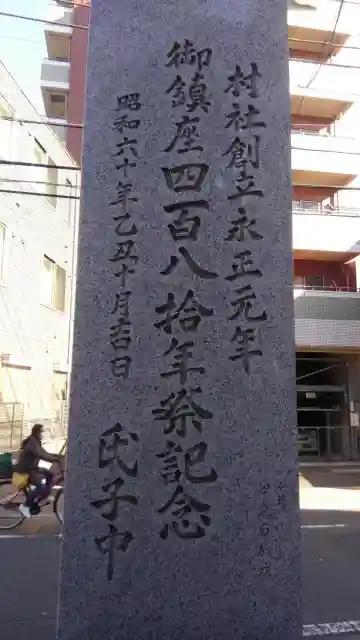 村社創立永正元年
御鎮座四百八拾年祭記念
昭和六十年乙丑十月吉日
氏子中